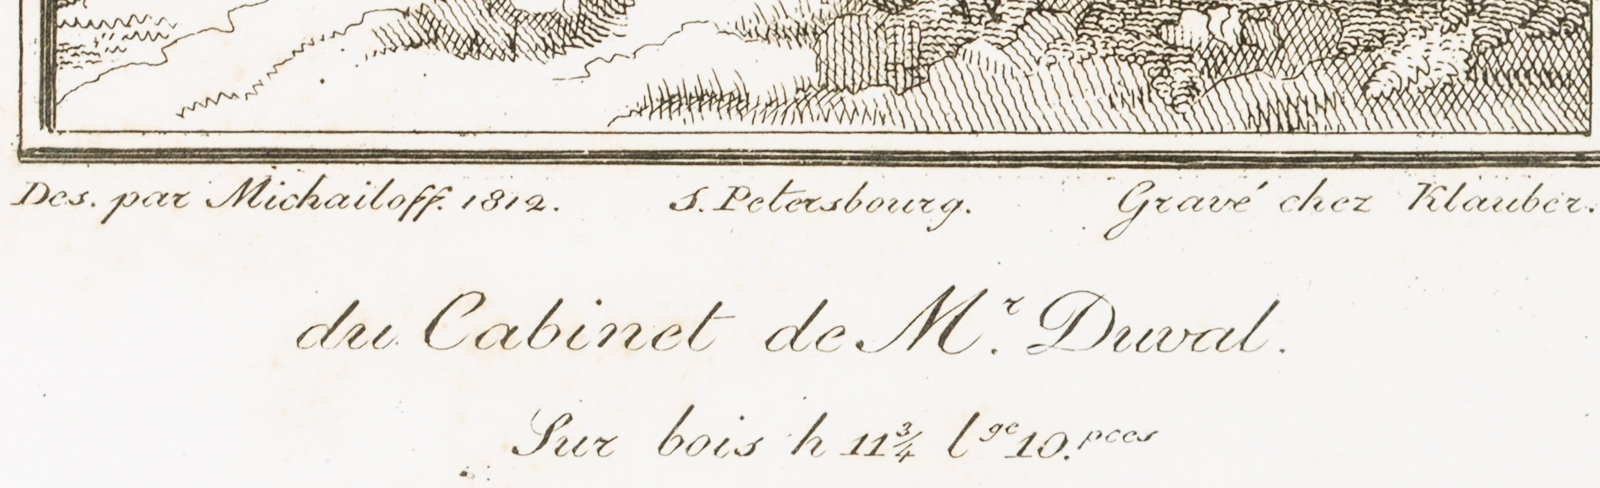 Des. par Michailoff. 1812. S. Petersbourg. Gravé chez Klauber.
du Cabinet de Mr. Duval.
Sur bois h 11¾ lge 10. pces